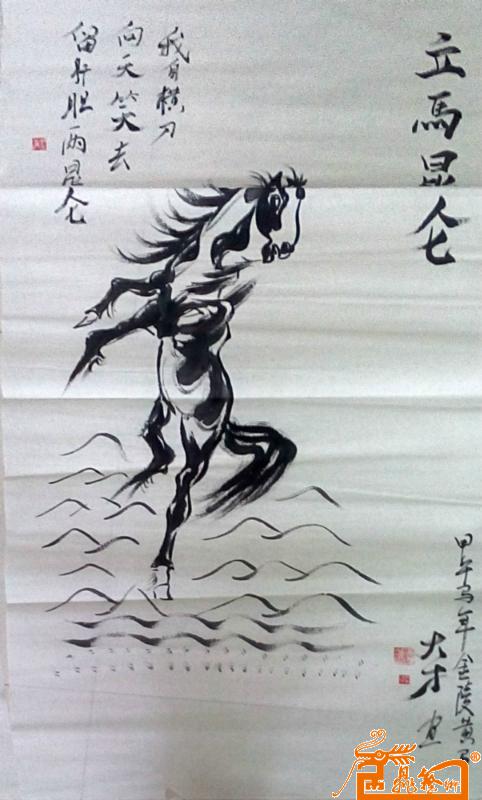 立馬昆仑
我自横刀
向天笑去
留肝胆两昆仑
甲午马年金陵黄
大才画